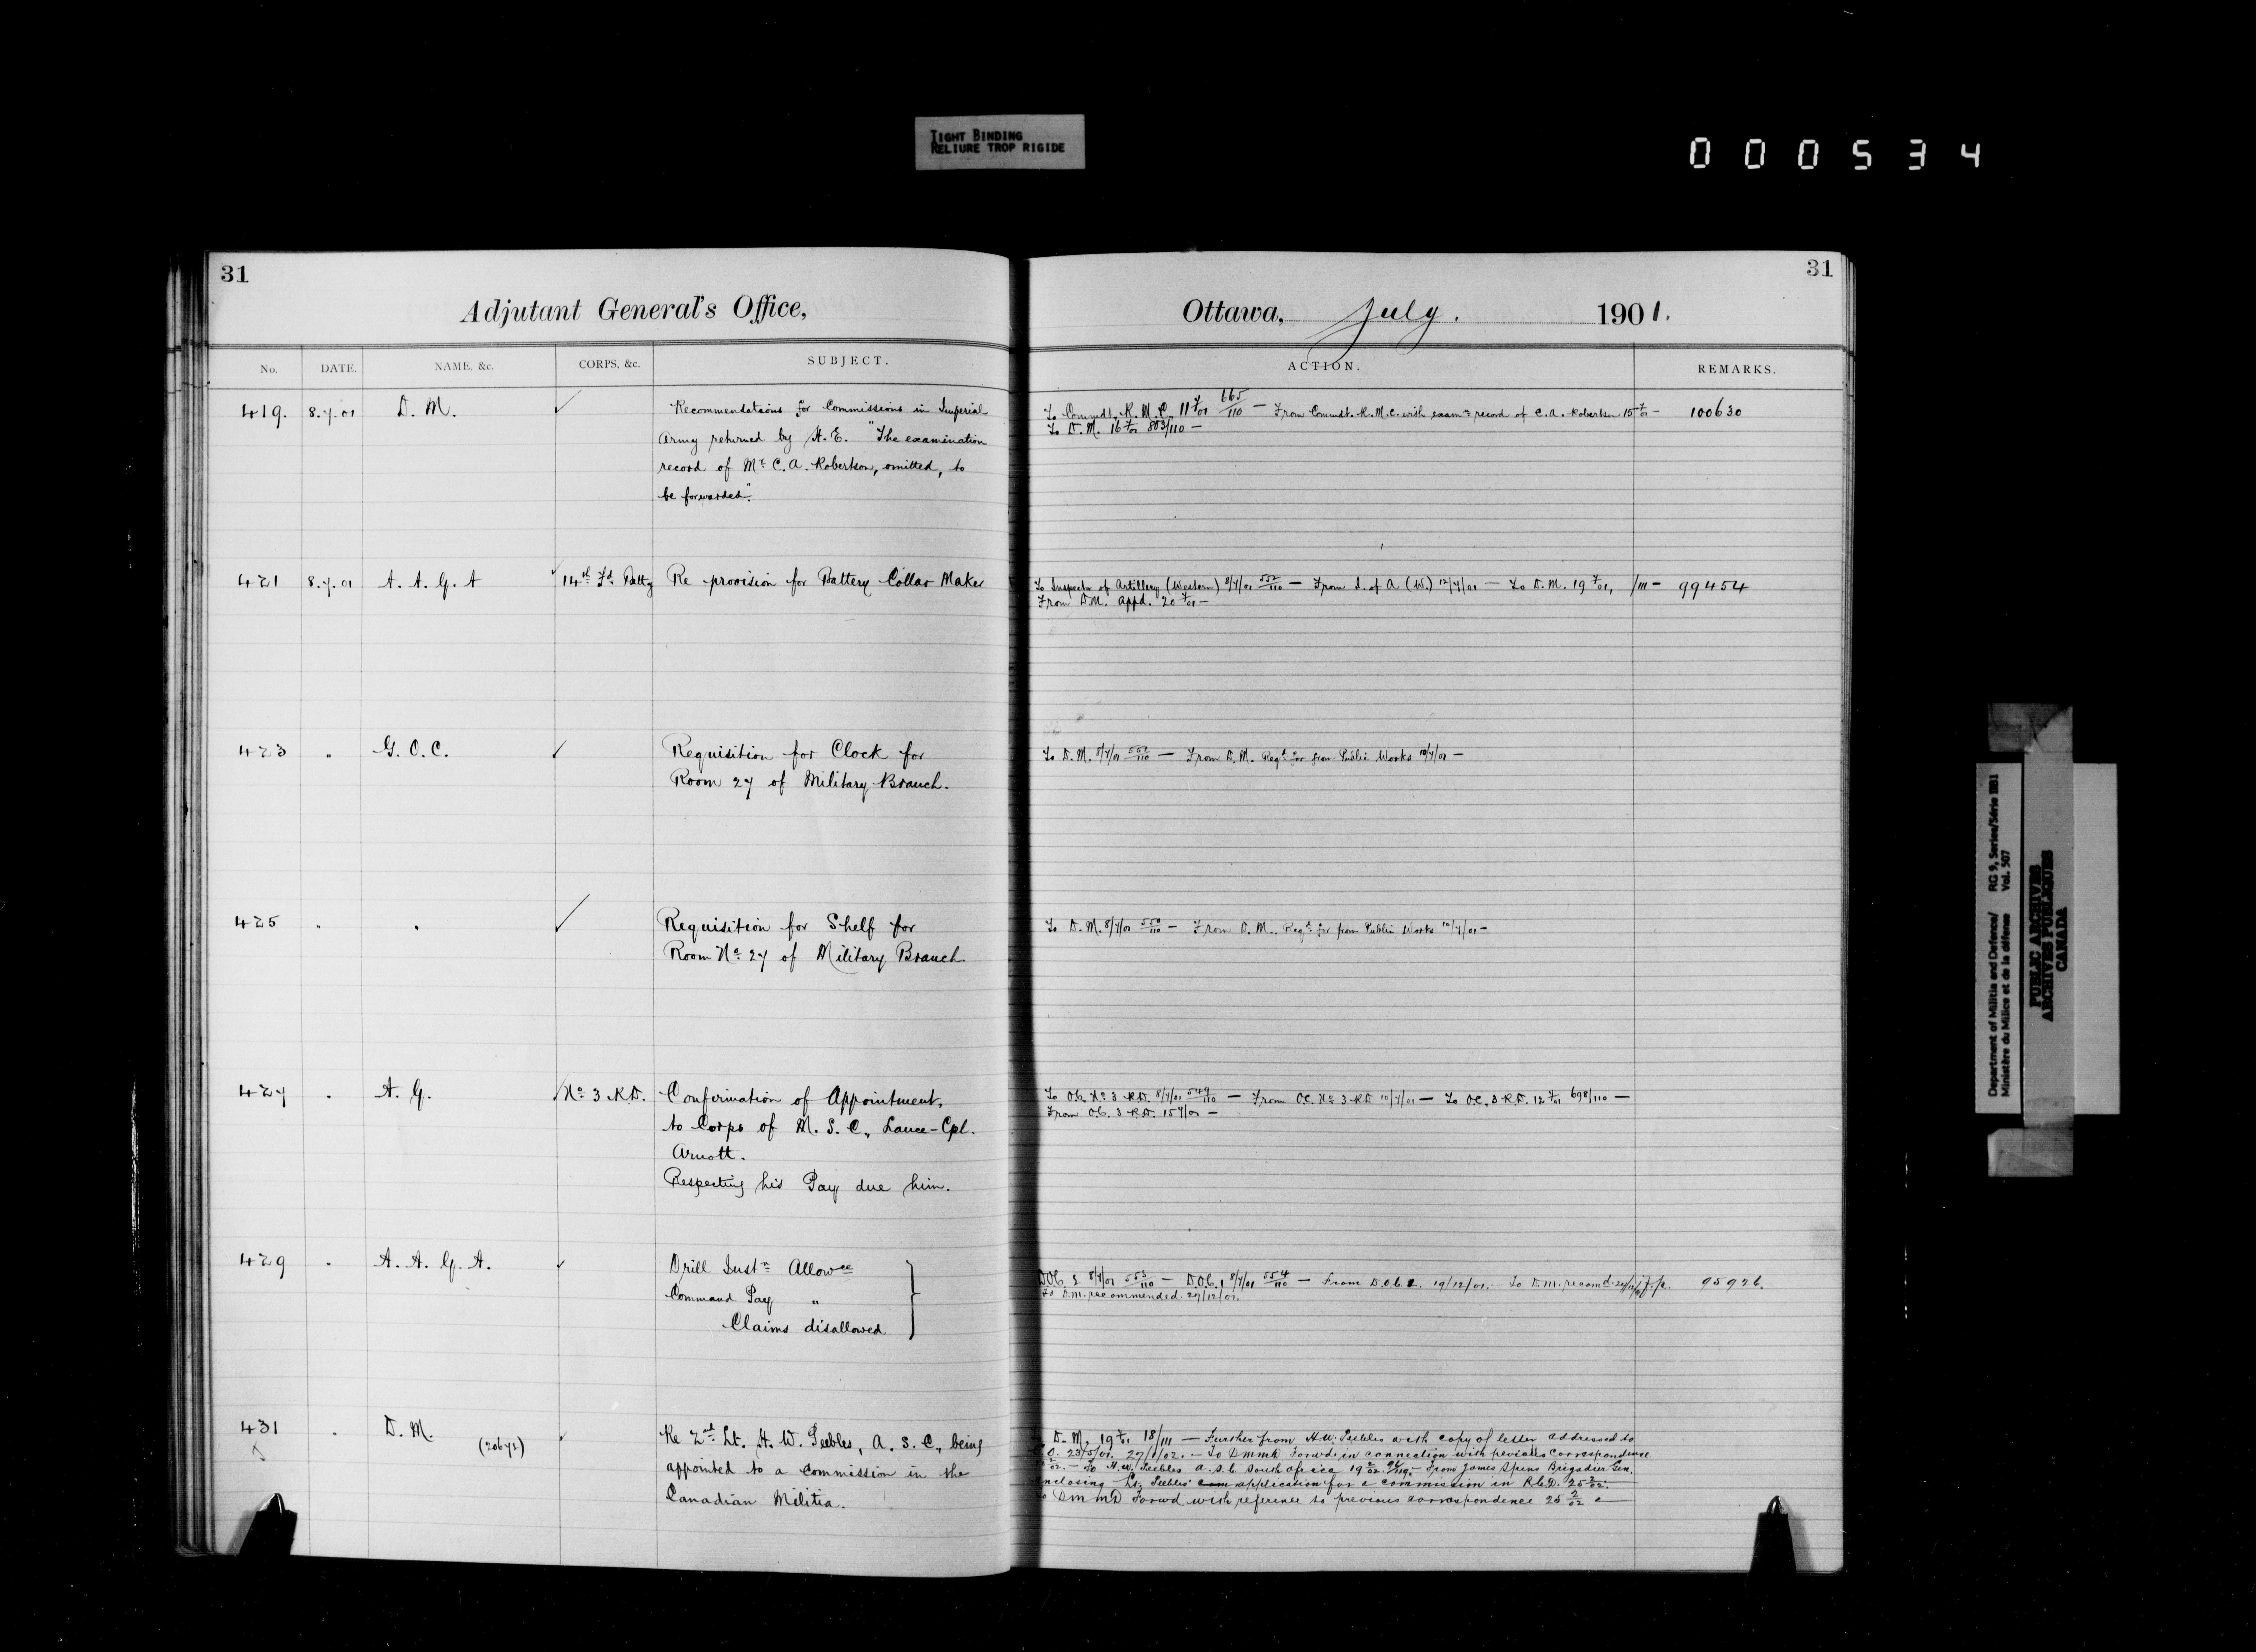 TIGHT BINDING
RELIURE TROP RIGIDE
000534
31
Adjutant General's Office,
No. DATE. NAME, &c. CORPS, &c. SUBJECT.
419. 8.7.01 D. M. ✓ Recommendations for Commissions in Imperial
Army returned by H. E. "The examination
record of Mr. C. A. Robertson, omitted, to
be forwarded".
421 8.7.01 A. A. G. A ✓ 14th Fd. Batty Re provision for Battery Collar Maker
423 " G. O. C. ✓ Requisition for Clock for
Room 27 of Military Branch.
425 " " ✓ Requisition for Shelf for
Room No. 27 of Military Branch
427 " A. G. ✓ No. 3 R.D. Confirmation of Appointment,
to Corps of M. S. C., Lance-Cpl.
Arnott.
Respecting his Pay due him.
429 " A. A. G. A. ✓ Drill Instn. Allowce
Command Pay "
Claims disallowed
431 " D. M. (20672) ✓ Re 2nd Lt. H. W. Peebles, A. S. C., being
appointed to a commission in the
Canadian Militia.
31
Ottawa, July. 1901.
ACTION. REMARKS.
To Commdt. R. M. C. 11 7/01 665/110 — From Commdt. R. M. C. with exam. record of C. A. Robertson 15 7/01 — 100630
To D. M. 16 7/01 803/110 —
To Inspector of Artillery (Western) 8/7/01 552/110 — From I. of A (W.) 12/7/01 — To D. M. 19 7/01, /111 — 99454
From D.M. appd. 20 7/01 —
To D. M. 8/7/01 551/110 — From D. M. Reqd. for from Public Works 10/7/01 —
To D. M. 8/7/01 550/110 — From D. M., Reqd. for from Public Works 10/7/01 —
To OC. No. 3 R.D. 8/7/01 549/110 — From OC. No. 3 R.D 10/7/01 — To OC. 3 R.D. 12 7/01 698/110 —
From OC. 3 R.D. 15/7/01 —
DOC. 2 8/7/01 553/110 — DOC. 1 8/7/01 554/110 — From D.O.C. 2. 19/12/01. — To D.M. recomd. 95926.
To D.M. recommended. 27/12/01.
D. M. 19 7/01 18/111 — Further from H.W. Peebles with copy of letter addressed to
23/5/01. 27/1/02. — To DMMD Forwd. in connection with previous correspondence
To H. W. Peebles A.S.C. South Africa 19 2/02. — From James Spens Brigadier Gen.
enclosing Lt. Peebles' application for a commission in R.C.D. 25 2/02.
To DM MD Forwd with reference to previous correspondence 25 2/02
Department of Militia and Defence/ RG 9, Series/Série IIB1
Ministère du Milice et de la défense Vol. 507
PUBLIC ARCHIVES
ARCHIVES PUBLIQUES
CANADA